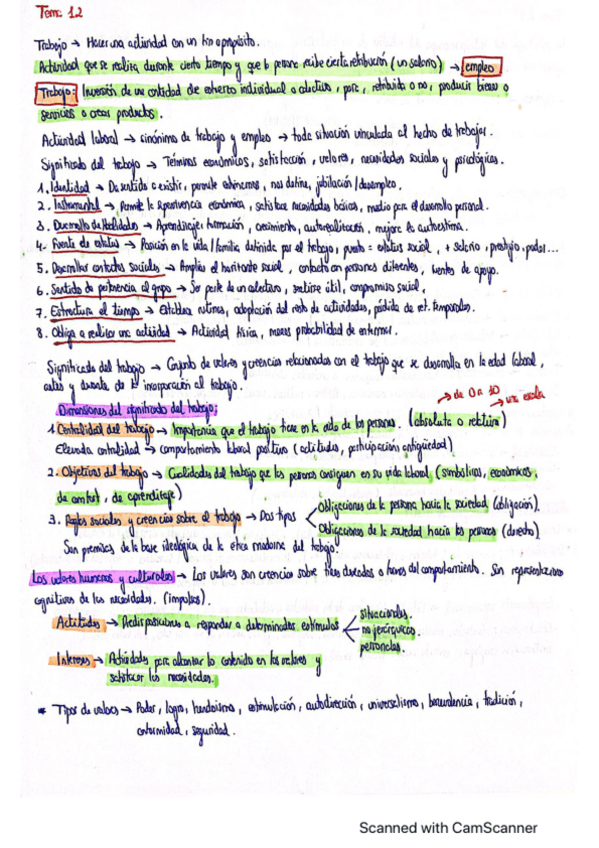 Tema 1.2
Trabajo → Hacer una actividad con un fin o propósito.
Actividad que se realiza durante cierto tiempo y que la persona recibe cierta retribución (un salario) → empleo
Trabajo: Inversión de una cantidad de esfuerzo individual o colectivo, para, retribuida o no, producir bienes o
servicios o crear productos.
Actividad laboral → sinónimo de trabajo y empleo → toda situación vinculada al hecho de trabajar.
Significado del trabajo → Términos económicos, satisfacción, valores, necesidades sociales y psicológicas.
1. Identidad → Da sentido a existir, permite, nos define, jubilación / desempleo.
2. Instrumental → Permite la supervivencia económica, satisface necesidades básicas, medio para el desarrollo personal.
3. Desarrollo de Habilidades → Aprendizaje, formación, crecimiento, autorrealización, mejora la autoestima.
4. Fuente de estatus → Posición en la vida / familia definida por el trabajo, puesto = estatus social, + salario, prestigio, poder...
5. Desarrollar contactos sociales → Amplía el horizonte social, contactar con personas diferentes, fuentes de apoyo.
6. Sentido de pertenencia al grupo → Ser parte de un colectivo, sentirse útil, compromiso social.
7. Estructura el tiempo → Establece rutinas, adaptación del resto de actividades, pérdida de ref. temporales.
8. Obliga a realizar una actividad → Actividad física, menos probabilidad de enfermar.
Significado del trabajo → Conjunto de valores y creencias relacionados con el trabajo que se desarrolla en la edad laboral,
antes y durante de la incorporación al trabajo.
Dimensiones del significado del trabajo:
→ de 0 a 10
→ una escala
1. Centralidad del trabajo → Importancia que el trabajo tiene en la vida de las personas. (absoluta o relativa)
Elevada centralidad → comportamiento laboral positivo (actitudes, participación antigüedad)
2. Objetivos del trabajo → Cualidades del trabajo que las personas consiguen en su vida laboral (simbólicos, económicos,
de confort, de aprendizaje)
3. Reglas sociales y creencias sobre el trabajo → Dos tipos
Obligaciones de la persona hacia la sociedad (obligación).
Obligaciones de la sociedad hacia las personas (derecho)
Son premisas de la base ideológica de la ética moderna del trabajo
Los valores humanos y culturales → Los valores son creencias sobre fines deseados a través del comportamiento. Son representaciones
cognitivas de las necesidades. (impulsos).
Actitudes → Predisposiciones a responder a determinados estímulos
situacionales.
mi jerárquicos.
personales.
Intereses → Actividades para alcanzar lo contenido en los valores y
satisfacer las necesidades.
* Tipos de valores → Poder, logro, hedonismo, estimulación, autodirección, universalismo, benevolencia, tradición,
conformidad, seguridad.
Scanned with CamScanner